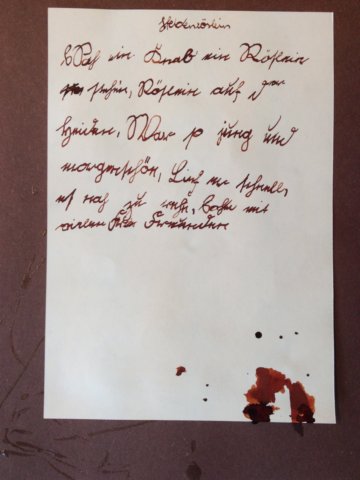 Heidenröslein
Sah ein Knab ein Röslein
stehn, Röslein auf der
Heiden, War so jung und
morgenschön, Lief er schnell,
es nah zu sehn, Sahs mit
vielen Freuden